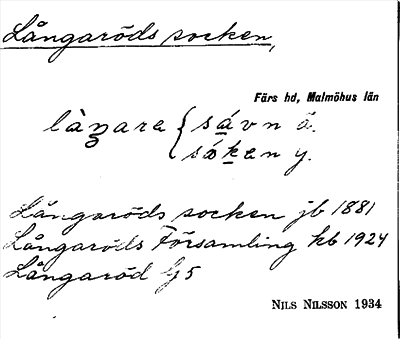 Långaröds socken,
Färs hd, Malmöhus län
làꞥara { sávn ä.
sǻken y.
Långaröds socken jb 1881
Långaröds Församling kb 1924
Långaröd Gj 5
NILS NILSSON 1934